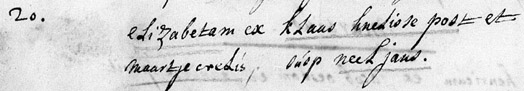 20. elizabetam ex klaas knelisse post et
maartje credis, susp neeltjans.